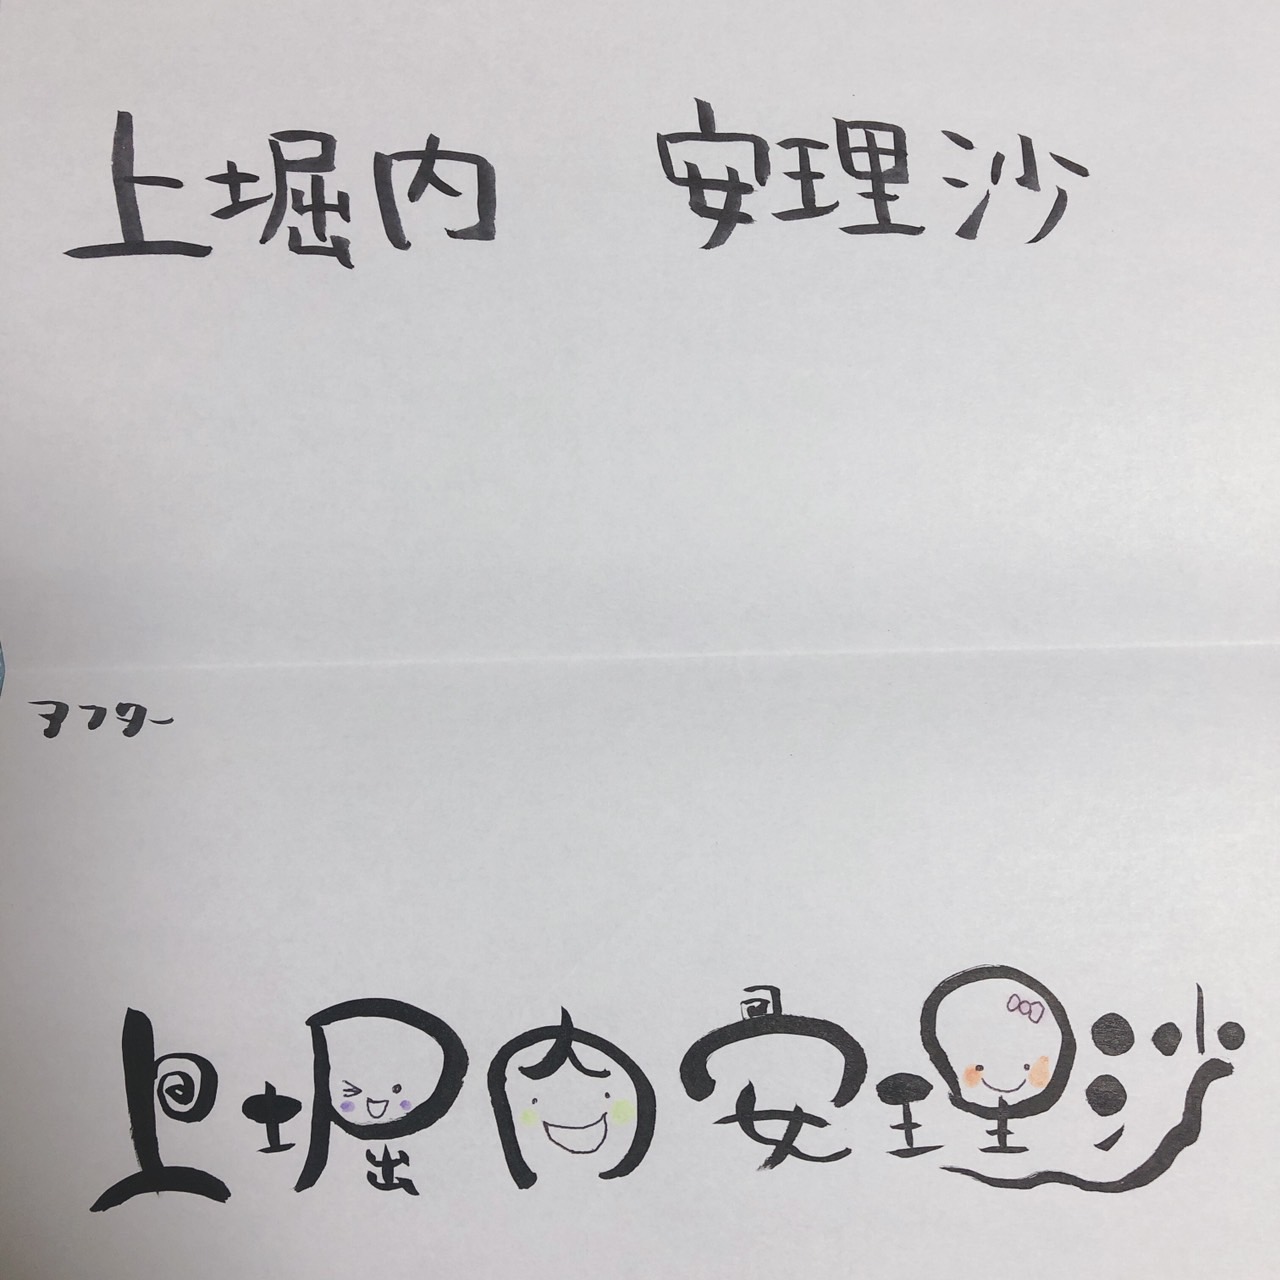 上堀内　安理沙
アフター
上堀内安理沙